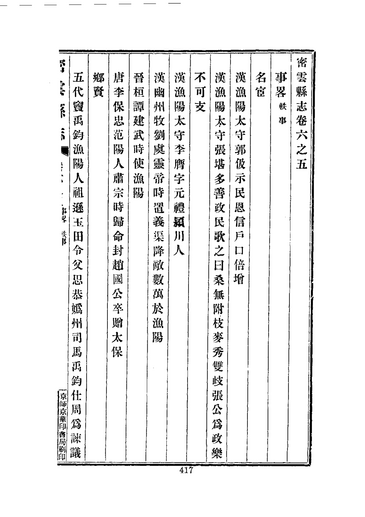 密雲縣志卷六之五
事畧 軼事
名宦
漢漁陽太守郭伋示民恩信戶口倍增
漢漁陽太守張堪多善政民歌之曰桑無附枝麥秀雙歧張公為政樂
不可支
漢漁陽太守李膺字元禮潁川人
漢幽州牧劉虞靈帝時置義渠降敵數萬於漁陽
晉桓譚建武時使漁陽
唐李保忠范陽人肅宗時歸命封趙國公卒贈太保
鄉賢
五代竇禹鈞漁陽人祖遜玉田令父思恭媯州司馬禹鈞仕周為諫議
京師京華印書局刷印
417